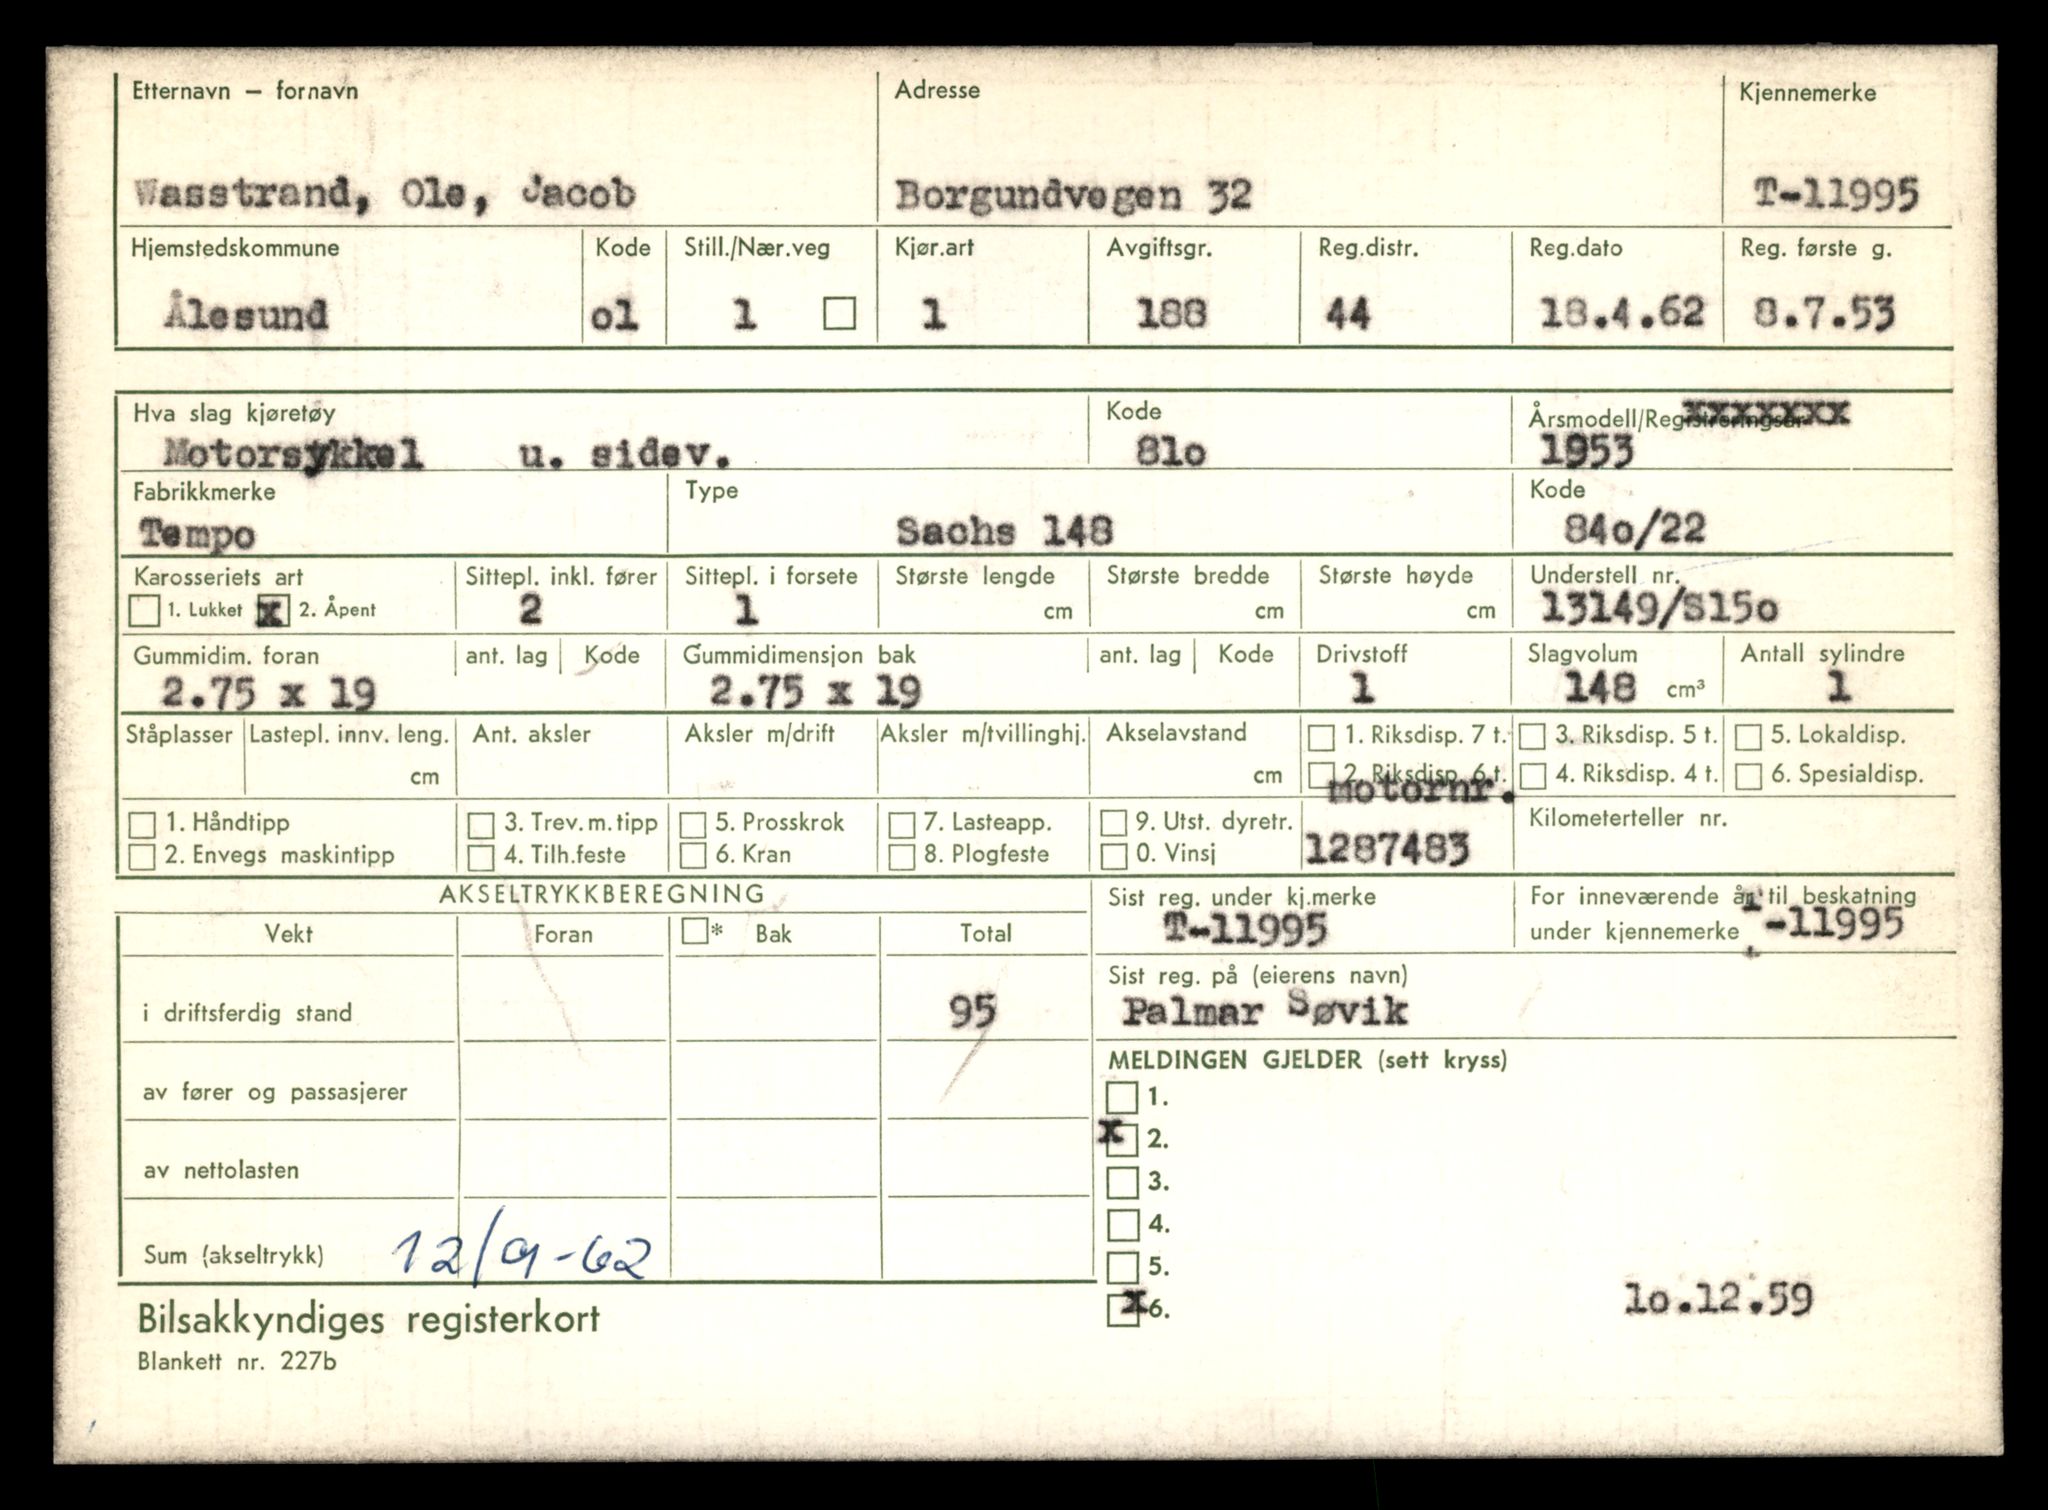 Etternavn – fornavn Adresse Kjennemerke
Wasstrand, Ole, Jacob Borgundvegen 32 T-11995
Hjemstedskommune Kode Still./Nær.veg Kjør.art Avgiftsgr. Reg.distr. Reg.dato Reg. første g.
Ålesund o1 1 1 188 44 18.4.62 8.7.53
Hva slag kjøretøy Kode Årsmodell/Registreringsår xxxxxxx
Motorsykkel u. sidev. 81o 1953
Fabrikkmerke Type Kode
Tempo Sachs 148 84o/22
Karosseriets art Sittepl. inkl. fører Sittepl. i forsete Største lengde Største bredde Største høyde Understell nr.
1. Lukket x 2. Åpent 2 1 cm cm cm 13149/S15o
Gummidim. foran ant. lag Kode Gummidimensjon bak ant. lag Kode Drivstoff Slagvolum Antall sylindre
2.75 x 19 2.75 x 19 1 148 cm³ 1
Ståplasser Lastepl. innv. leng. Ant. aksler Aksler m/drift Aksler m/tvillinghj. Akselavstand 1. Riksdisp. 7 t. 3. Riksdisp. 5 t. 5. Lokaldisp.
cm cm 2. Riksdisp. 6 t. 4. Riksdisp. 4 t. 6. Spesialdisp.
motornr.
1. Håndtipp 3. Trev. m. tipp 5. Prosskrok 7. Lasteapp. 9. Utst. dyretr. Kilometerteller nr.
2. Envegs maskintipp 4. Tilh.feste 6. Kran 8. Plogfeste 0. Vinsj 1287483
AKSELTRYKKBEREGNING Sist reg. under kj.merke For inneværende år til beskatning
T-11995 under kjennemerke T-11995
Vekt Foran * Bak Total
Sist reg. på (eierens navn)
i driftsferdig stand 95 Palmar Søvik
MELDINGEN GJELDER (sett kryss)
av fører og passasjerer 1.
x 2.
av nettolasten 3.
4.
Sum (akseltrykk) 12/9-62 5.
x 6. 1o.12.59
Bilsakkyndiges registerkort
Blankett nr. 227b